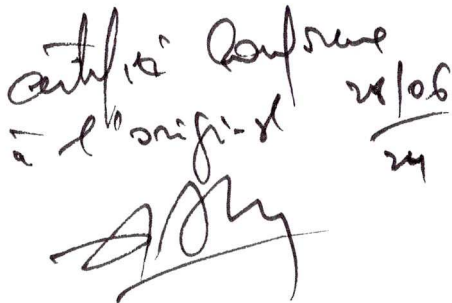 certifié Conforme
à l'original
28/06
24